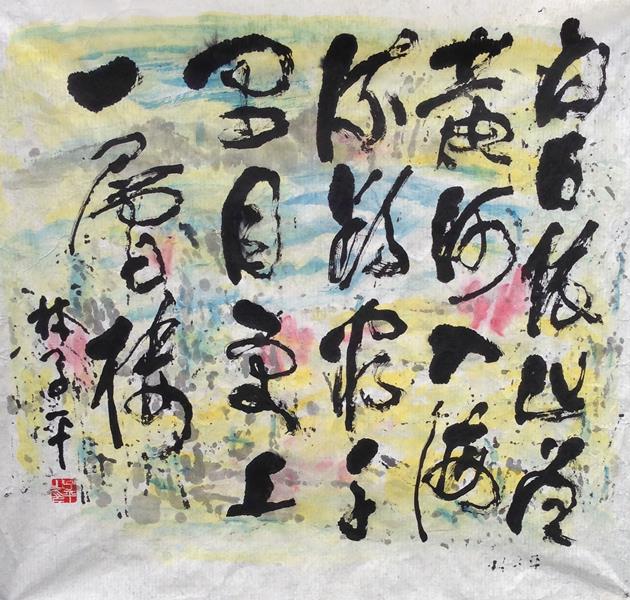 白日依山尽
黄河入海
流欲穷千
里目更上
一層楼
林子平